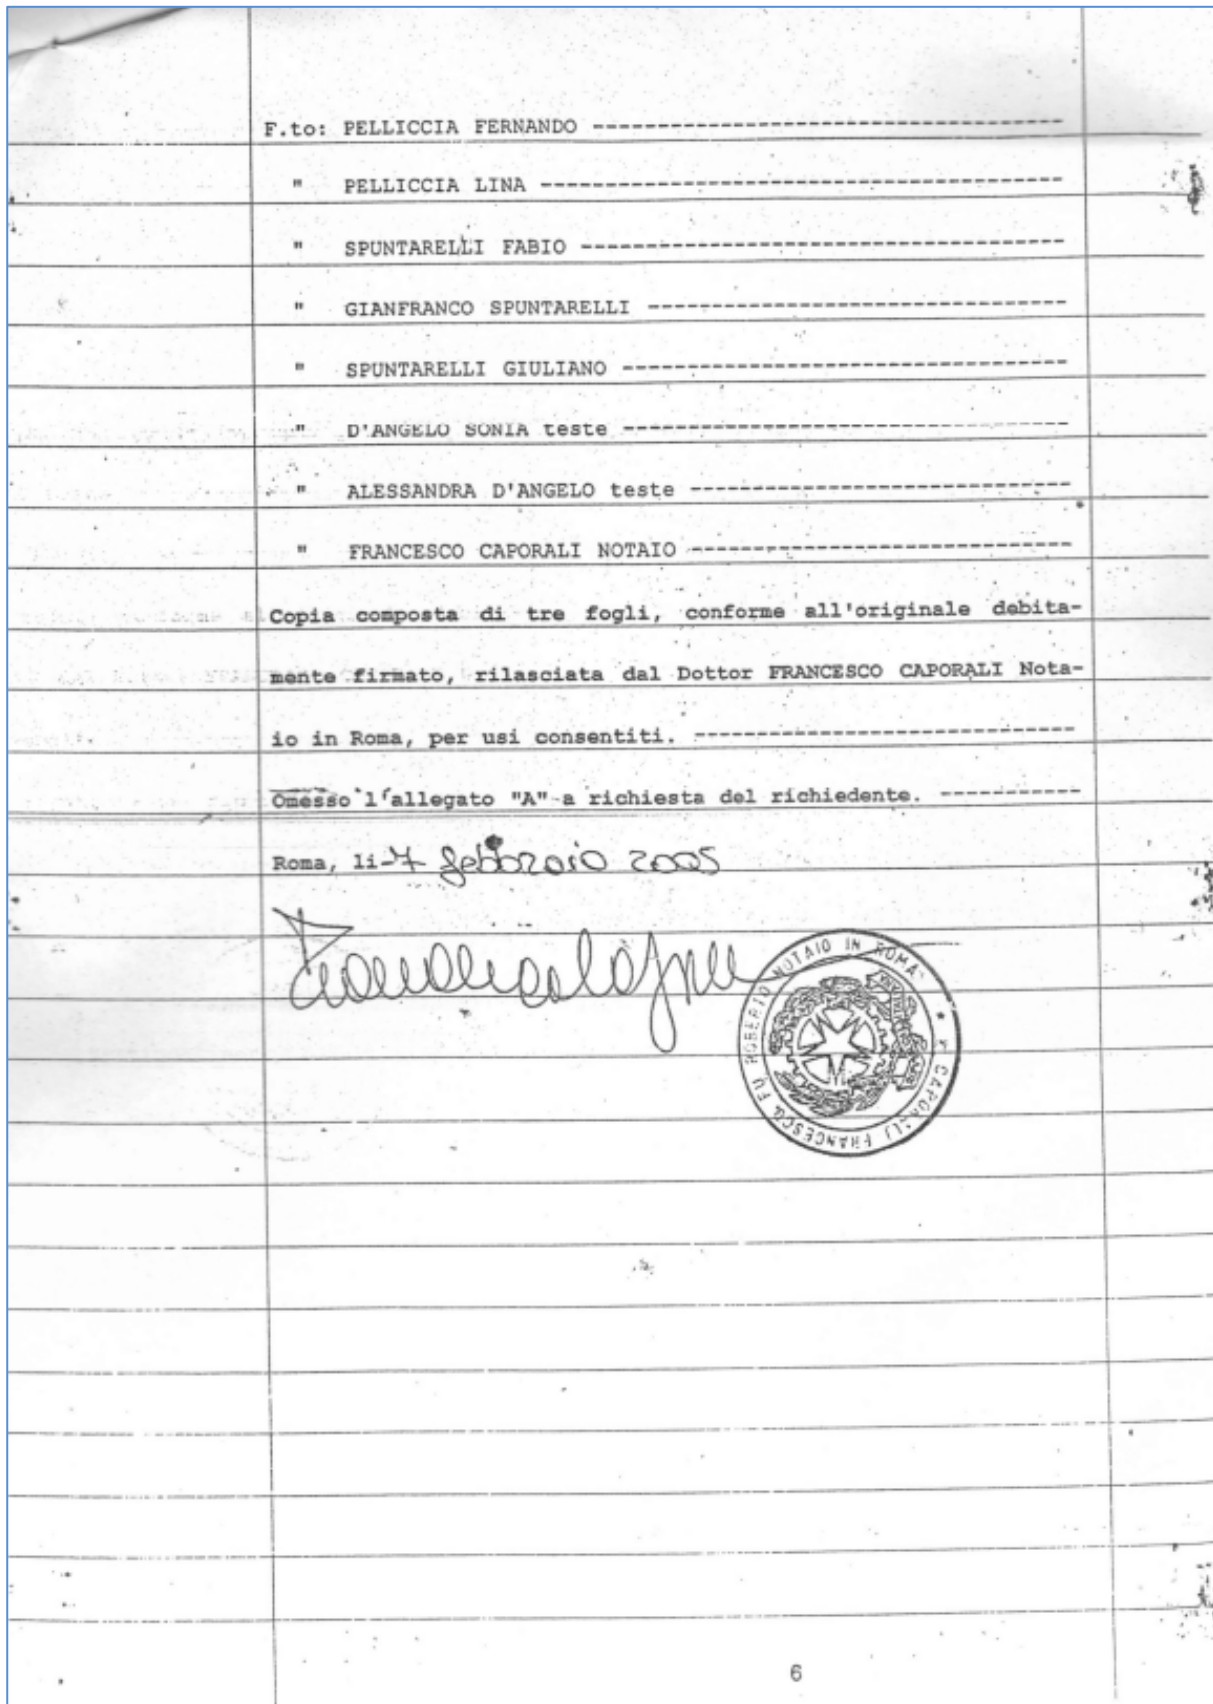 F.to: PELLICCIA FERNANDO ------------------------------------
" PELLICCIA LINA ----------------------------------------
" SPUNTARELLI FABIO -------------------------------------
" GIANFRANCO SPUNTARELLI --------------------------------
" SPUNTARELLI GIULIANO ----------------------------------
" D'ANGELO SONIA teste ----------------------------------
" ALESSANDRA D'ANGELO teste -----------------------------
" FRANCESCO CAPORALI NOTAIO -----------------------------
Copia composta di tre fogli, conforme all'originale debita-
mente firmato, rilasciata dal Dottor FRANCESCO CAPORALI Nota-
io in Roma, per usi consentiti. -----------------------------
Omesso l'allegato "A" a richiesta del richiedente. -----------
Roma, li -7 febbraio 2005
CAPORALI FRANCESCO FU ROBERTO NOTAIO IN ROMA
6